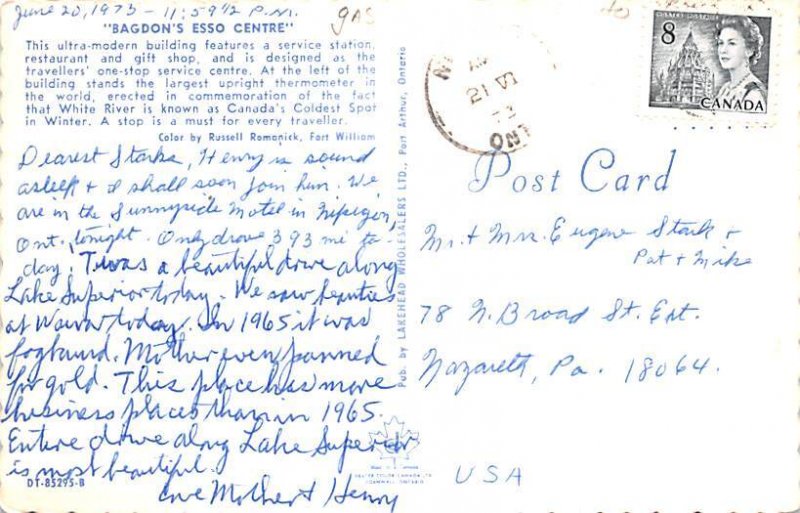 June 20, 1973 - 11:59½ P.M.
gas
to
"BAGDON'S ESSO CENTRE"
This ultra-modern building features a service station,
restaurant and gift shop, and is designed as the
travellers' one-stop service centre. At the left of the
building stands the largest upright thermometer in
the world, erected in commemoration of the fact
that White River is known as Canada's Coldest Spot
in Winter. A stop is a must for every traveller.
Color by Russell Romanick, Fort William
Dearest Starks, Henry is sound
asleep & I shall soon join him. We
are in the Sunnyside Motel in Nipigon,
Ont., tonight. Only drove 393 mi to-
day! Twas a beautiful drive along
Lake Superior today. We saw beauties
at Wawa today. In 1965 it was
fogbound. Mother even panned
for gold. This place has more
business places than in 1965.
Entire drive along Lake Superior
is most beautiful.
Love Mother & Henry
DT-85295-B
Pub. by LAKEHEAD WHOLESALERS LTD., Port Arthur, Ontario
AM
21 VI
73
ONT
8
CANADA
Post Card
Mr. & Mrs. Eugene Stark &
Pat & Mike
78 N. Broad St. Ext.
Nazareth, Pa. 18064.
USA